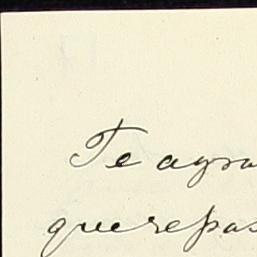 Te agra
que repas